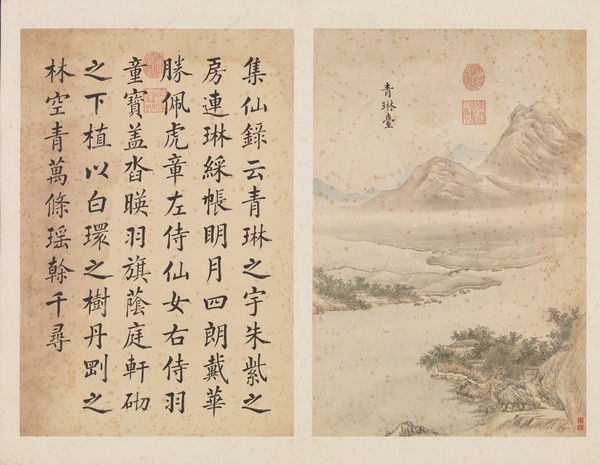 青琳臺
集仙錄云青琳之宇朱紫之
房連琳綵帳明月四朗戴華
勝佩虎章左侍仙女右侍羽
童寶盖沓暎羽旗蔭庭軒砌
之下植以白環之樹丹剛之
林空青萬條瑶榦千尋